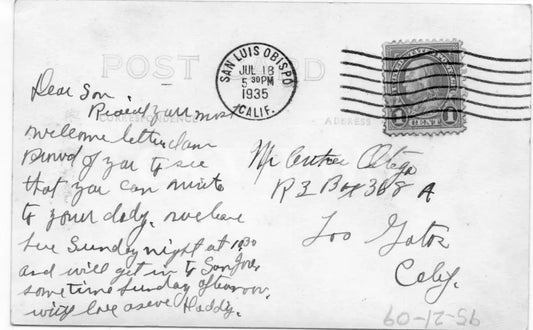 POST CARD
SAN LUIS OBISPO
JUL 18
5 30PM
1935
CALIF.
1 CENT 1
CORRESPONDENCE
ADDRESS
Dear Son.
Recievd your most
welcome letter I am
Proud of you to see
that you can write
to your dady. we leave
here Sunday night at 12.30
and will get in to San Jose
sometime Sunday afternoon.
with love as ever Daddy.
Mr
R 2 Box 368 A
Los Gatos
Calif.
95-21-09